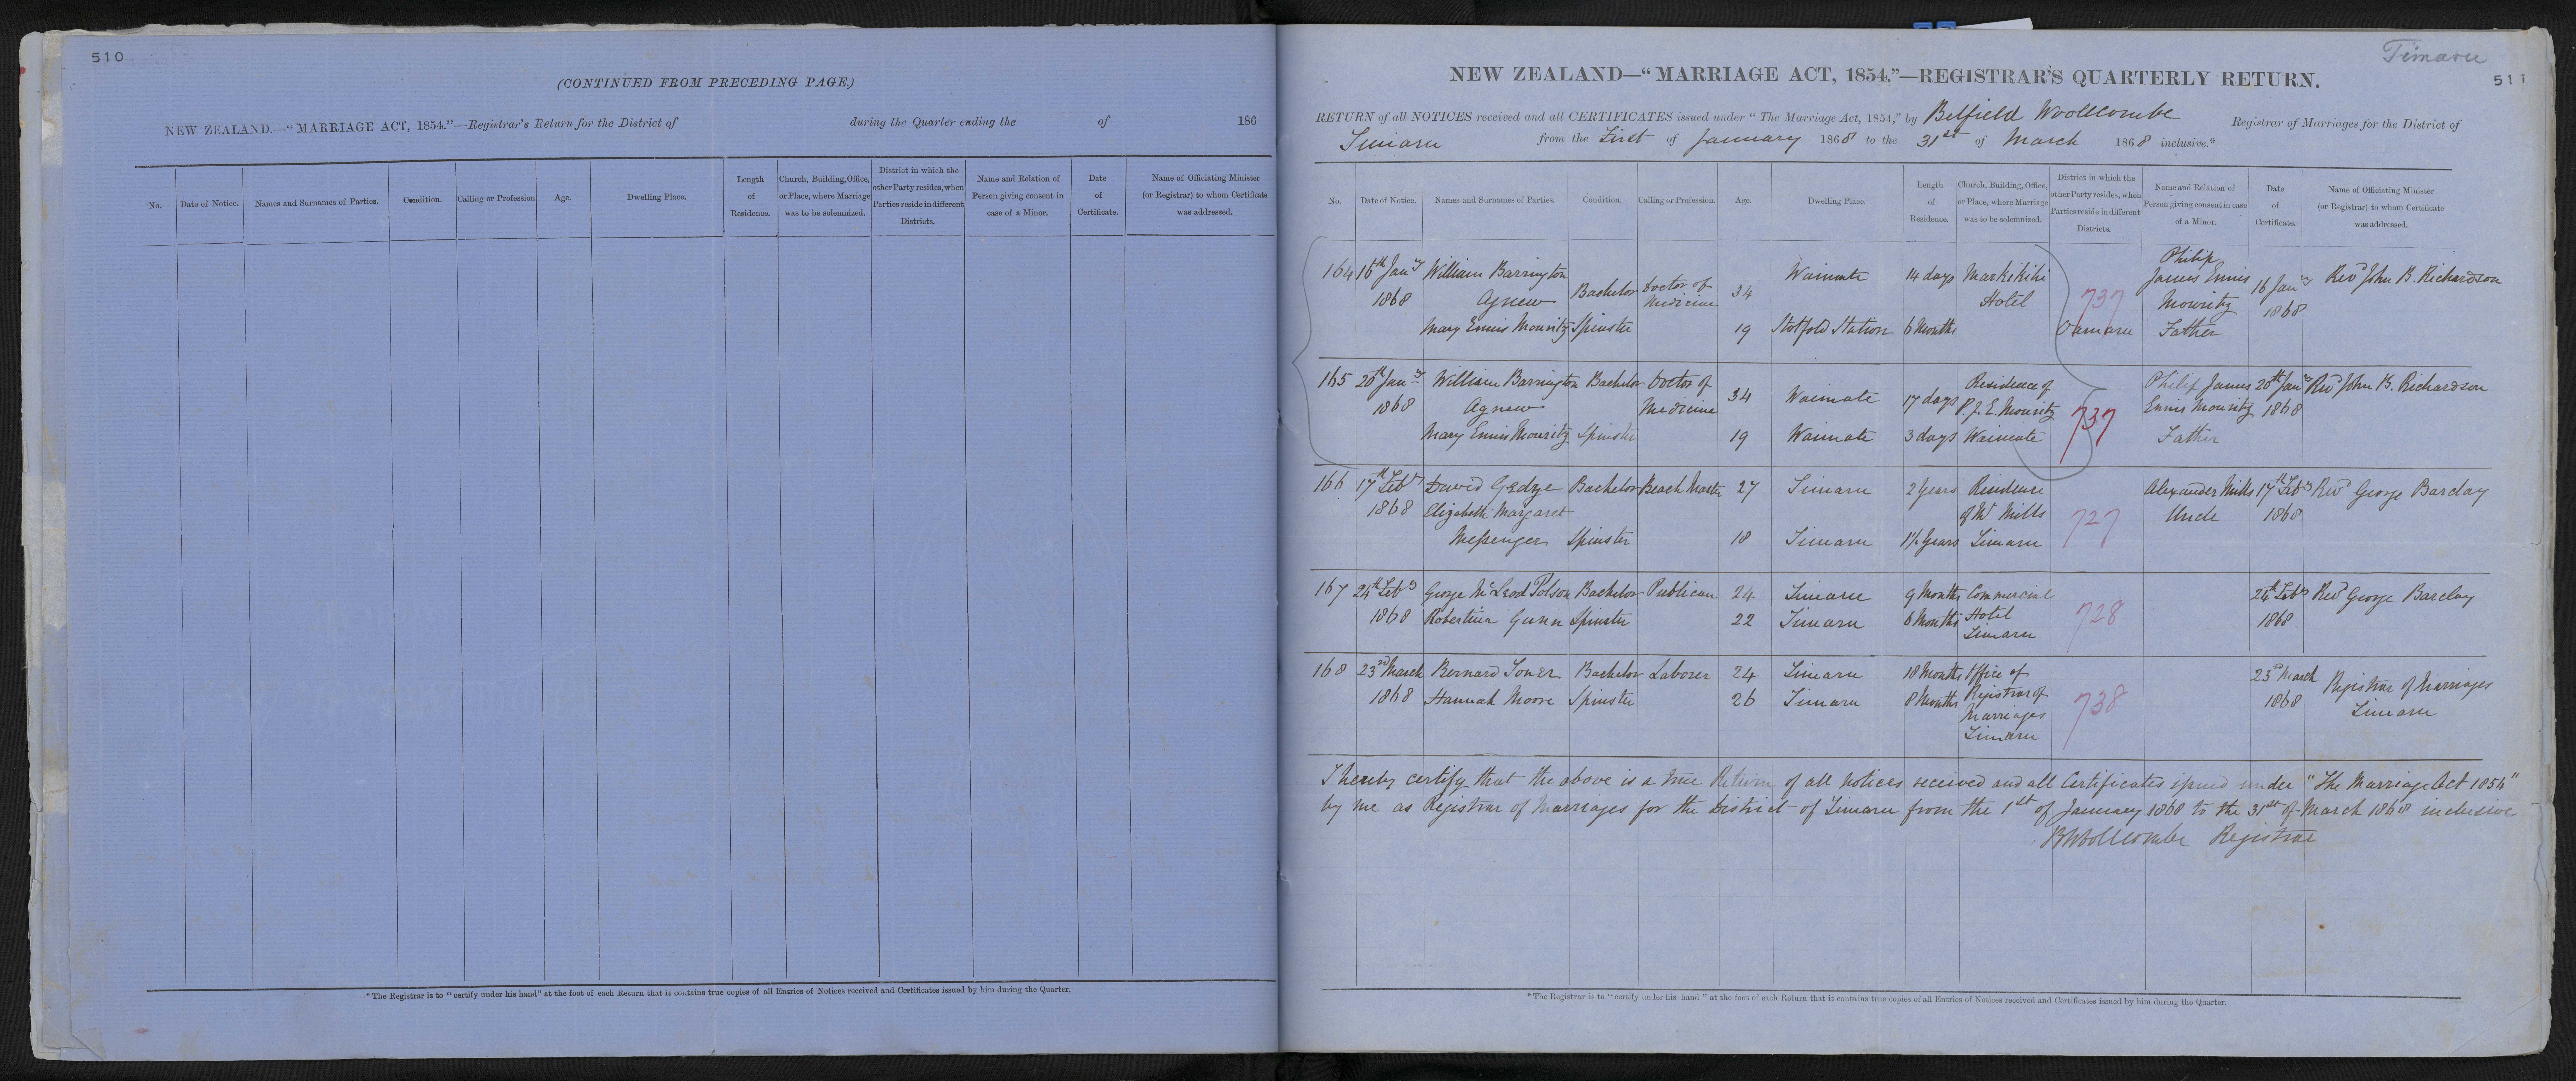 510
(CONTINUED FROM PRECEDING PAGE.)
NEW ZEALAND.—"MARRIAGE ACT, 1854."—Registrar's Return for the District of during the Quarter ending the of 186
No. Date of Notice. Names and Surnames of Parties. Condition. Calling or Profession Age. Dwelling Place. Length of Residence. Church, Building, Office, or Place, where Marriage was to be solemnized. District in which the other Party resides, when Parties reside in different Districts. Name and Relation of Person giving consent in case of a Minor. Date of Certificate. Name of Officiating Minister (or Registrar) to whom Certificate was addressed.
*The Registrar is to "certify under his hand" at the foot of each Return that it contains true copies of all Entries of Notices received and Certificates issued by him during the Quarter.
Timaru
511
NEW ZEALAND—"MARRIAGE ACT, 1854."—REGISTRAR'S QUARTERLY RETURN.
RETURN of all NOTICES received and all CERTIFICATES issued under "The Marriage Act, 1854," by Belfield Woollcombe Registrar of Marriages for the District of
Timaru from the First of January 1868 to the 31st of March 1868 inclusive.*
No. Date of Notice. Names and Surnames of Parties. Condition. Calling or Profession. Age. Dwelling Place. Length of Residence. Church, Building, Office, or Place, where Marriage was to be solemnized. District in which the other Party resides, when Parties reside in different Districts. Name and Relation of Person giving consent in case of a Minor. Date of Certificate. Name of Officiating Minister (or Registrar) to whom Certificate was addressed.
164 16th Jany 1868 William Barrington Agnew Bachelor Doctor of Medicine 34 Waimate 14 days Markikihi Hotel 737 Philip James Ennis Mouritz Father 16 Jany 1868 Revd John B. Richardson
Mary Ennis Mouritz Spinster 19 Stotfold Station 6 Months Oamaru
165 20th Jany 1868 William Barrington Agnew Bachelor Doctor of Medicine 34 Waimate 17 days Residence of P. J. E. Mouritz Waimate 737 Philip James Ennis Mouritz Father 20th Jany 1868 Revd John B. Richardson
Mary Ennis Mouritz Spinster 19 Waimate 3 days
166 17th Feby 1868 David Gedye Bachelor Beach Master 27 Timaru 2 Years Residence of Mr Mills Timaru 727 Alexander Mills Uncle 17th Feby 1868 Revd George Barclay
Elizabeth Margaret Messenger Spinster 18 Timaru 1½ Years
167 24th Feby 1868 George McLeod Polson Bachelor Publican 24 Timaru 9 Months Commercial Hotel Timaru 728 24th Feby 1868 Revd George Barclay
Robertina Gunn Spinster 22 Timaru 6 Months
168 23rd March 1868 Bernard Toner Bachelor Laborer 24 Timaru 18 Months Office of Registrar of Marriages Timaru 738 23rd March 1868 Registrar of Marriages Timaru
Hannah Moore Spinster 26 Timaru 8 Months
I hereby certify that the above is a true Return of all notices received and all Certificates issued under "The Marriage Act 1854"
by me as Registrar of Marriages for the District of Timaru from the 1st of January 1868 to the 31st of March 1868 inclusive
B Woollcombe Registrar
*The Registrar is to "certify under his hand" at the foot of each Return that it contains true copies of all Entries of Notices received and Certificates issued by him during the Quarter.